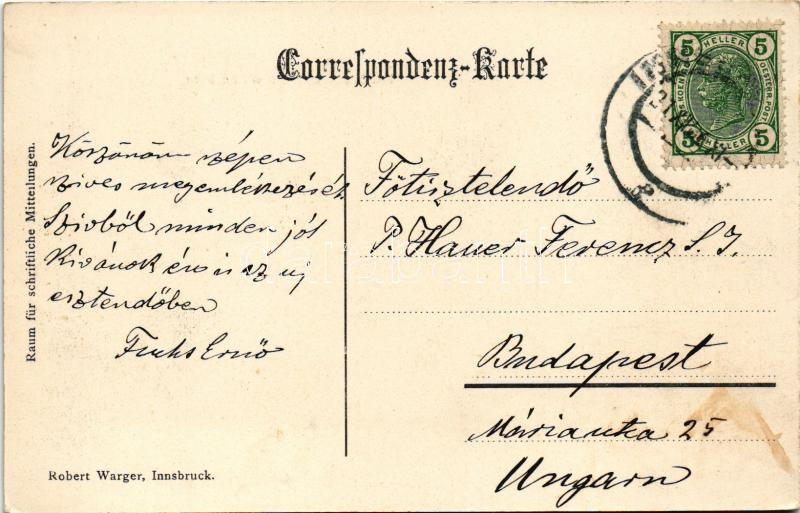 Correspondenz-Karte
Raum für schriftliche Mitteilungen.
Köszönöm szépen
szives megemlékezését
Szivből minden jót
Kivánok én is az uj
esztendőben
Fuchs Ernő
Főtisztelendő
P. Hauer Ferencz S. I.
Budapest
Mária utca 25
Ungarn
Robert Warger, Innsbruck.
5 HELLER 5
5 HELLER 5
darabanth